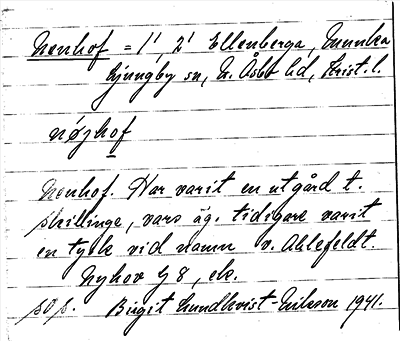 Nenhof = 1¹, 2¹ Ellenberga, Munka
Ljungby sn, N. Åsbo hd, Krist. l.
nøjhof
Nenhof. Har varit en utgård t.
Skillinge, vars äg. tidigare varit
en tysk vid namn v. Ahlefeldt.
Nyhov 48, ek.
sp. Birgit Lundkvist-Eriksson 1941.